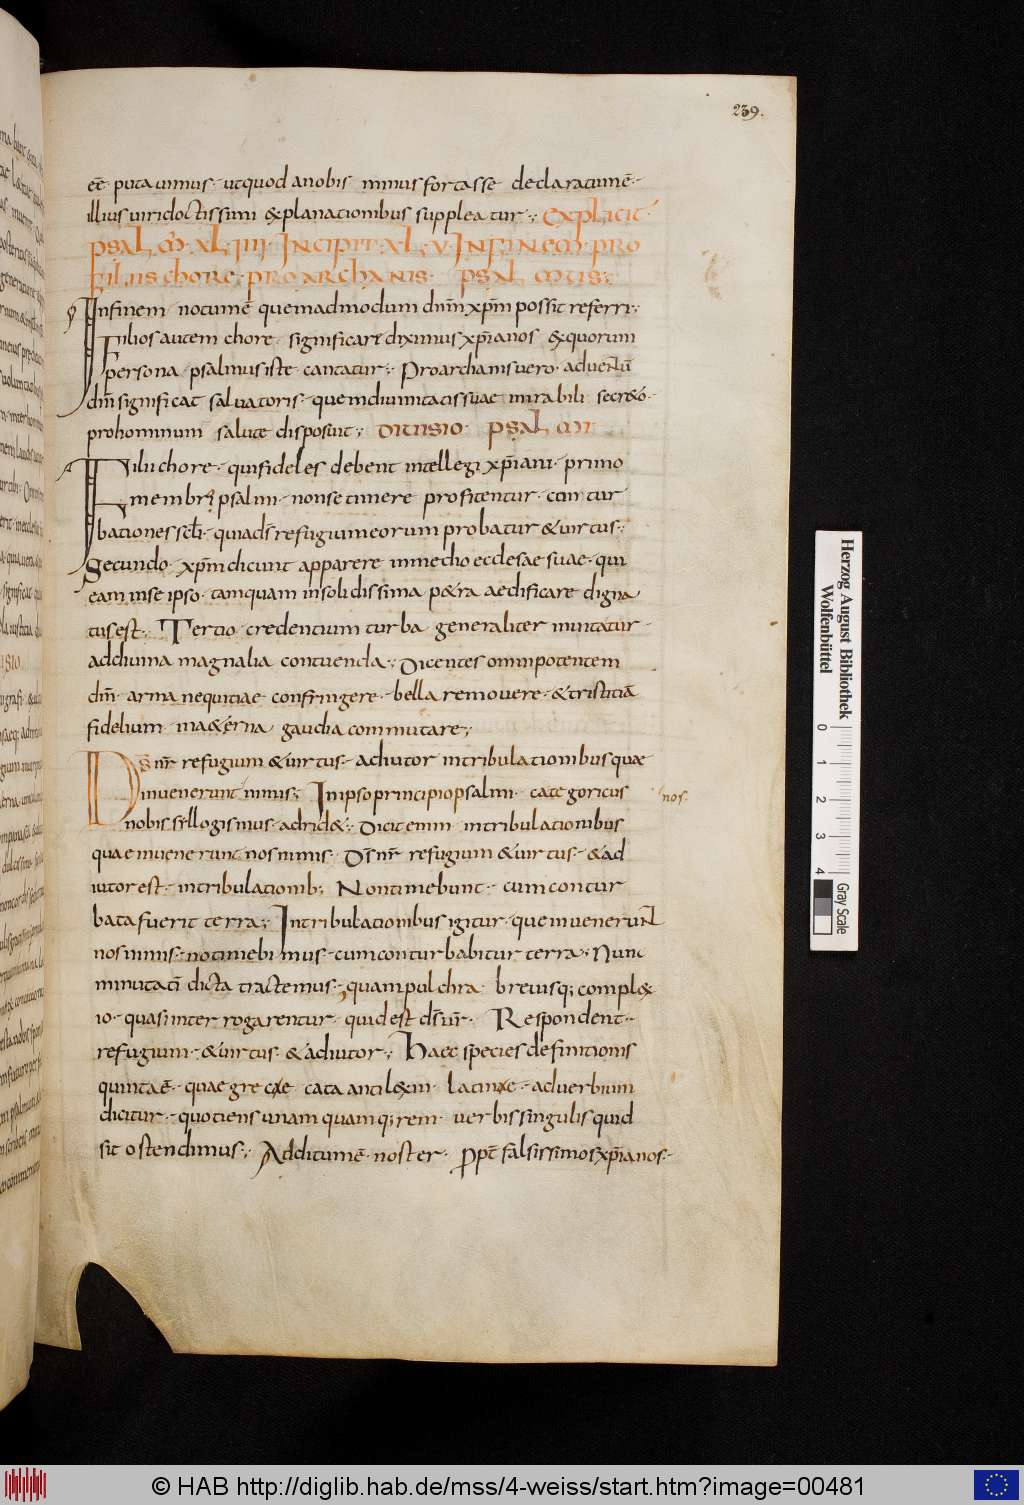 239.
eē· putauimus· utquod anobis minus fortasse declaratumē·
illius uiri doctissimi explanationibus suppleatur·; EXPLICIT·
PSALM̄· XLIIII· INCIPIT· XL·V· IN FINEM· PRO
FILIIS CHORE· PRO ARCHANIS· PSALMUS;
In finem notumē quemadmodum dn̄m xp̄m possit referri·;
Filios autem chore· significare diximus xp̄ianos exquorum
persona psalmus iste cantatur·; Pro archanis uero· aduentū
dn̄i significat saluatoris· quem diuinitatis suae mirabili secreto·
pro hominum salute disposuit·; DIUISIO· PSALMI
Filii chore· qui fideles debent intellegi xp̄iani· primo
membro psalmi· non se timere profitentur· contur
bationes scl̄i· quia dš refugium eorum probatur & uirtus·;
Secundo· xp̄m dicunt apparere in medio ecclesae suae· qui
eam in se ipso· tamquam in solidissima p&ra aedificare digna
tus est·; Tertio· credentium turba generaliter inuitatur·
ad diuina magnalia contuenda·; Dicentes omnipotentem
dn̄m· arma nequitiae confringere· bella remouere· & tristitiā
fidelium in a&erna gaudia commutare·;
Dš nr̄ refugium & uirtus·· adiutor in tribulationibus quae
inuenerunt nimis; In ipso principio psalmi· categoricus
nos·
nobis syllogismus adrid&·; Dicit enim in tribulationibus
quae inuenerunt nos nimis· Dš nr̄ refugium & uirtus·· & ad
iutor est·· in tribulationib; Non timebunt·· cum contur
bata fuerit terra·; In tribulationibus igitur· quae inuenerunt
nos nimis·· no timebimus·· cum conturbabitur terra·; Nunc
minutatī dicta tractemus·· quam pulchra breuisq; complex
io·· quasi interrogarentur· quid est dš ur̄· Respondent··
refugium·· & uirtus & adiutor·; Haec species definitionis
quinta ē·· quae grece cata antilexin· latine·· aduerbium
dicitur·· quotiens unam quamq; rem uerbis singulis quid
sit ostendimus·; Additum ē· noster· ꝓpt̄ falsissimos xp̄ianos··
Herzog August Bibliothek
Wolfenbüttel
0 1 2 3 4
Gray Scale
© HAB http://diglib.hab.de/mss/4-weiss/start.htm?image=00481